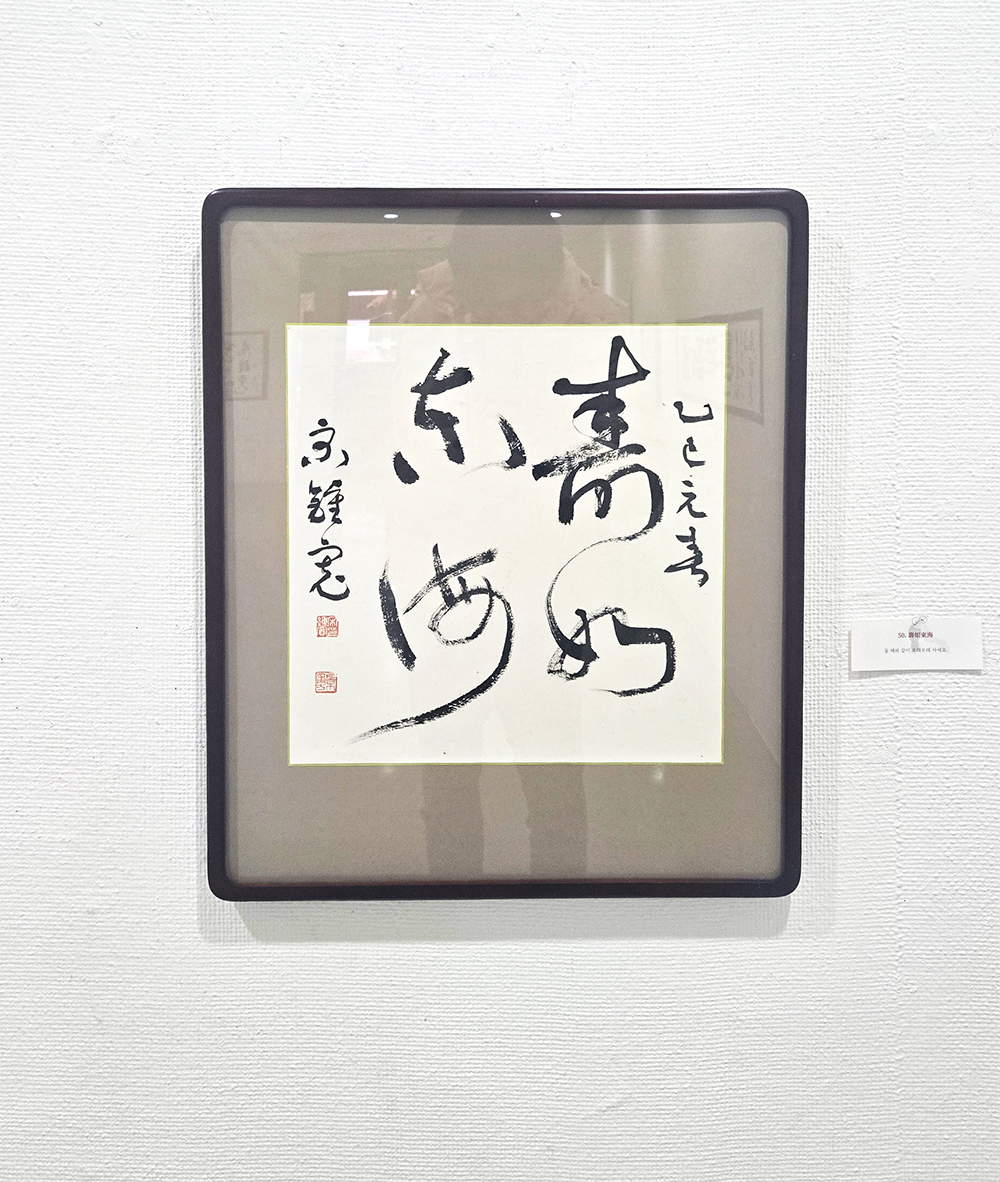 乙巳元春
壽如
东海
宋鍾寬
50. 壽如東海
동해와 같이 오래오래 사세요.